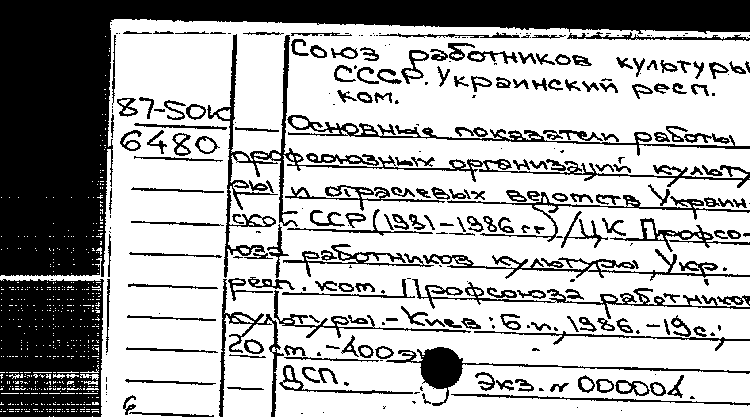 Союз работников культуры
СССР. Украинский респ.
ком.
87-5ОК
6480
Основные показатели работы
профсоюзных организаций культу-
ры и отраслевых ведомств Украин-
ской ССР (1981-1986 гг)/ЦК Профсо-
юза работников культуры, Укр.
респ. ком. Профсоюза работников
культуры.-Киев: Б.и., 1986.-19с.;
20 ст.-400 эк
ДСП. Экз. № 000004.
6